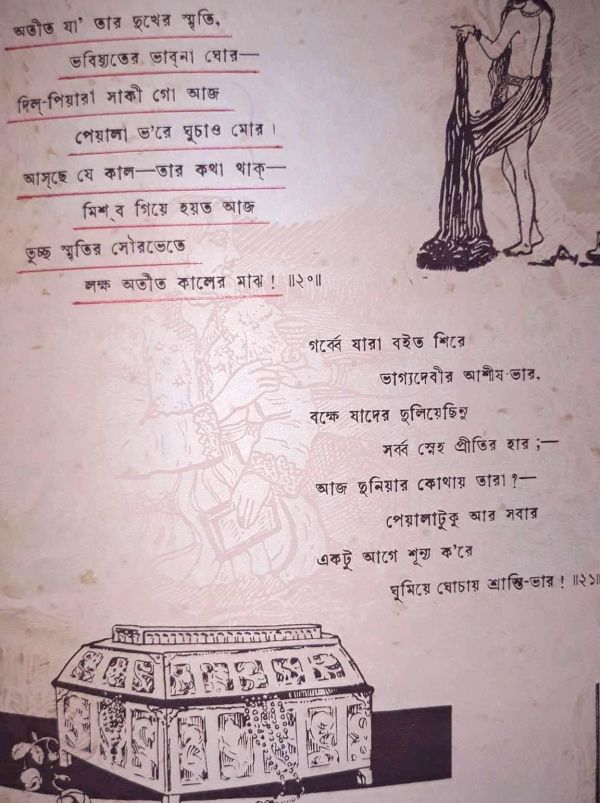 অতীত যা' তার দুখের স্মৃতি,
ভবিষ্যতের ভাবনা ঘোর—
দিল্-পিয়ারা সাকী গো আজ
পেয়ালা ভ'রে ঘুচাও মোর।
আস্‌ছে যে কাল—তার কথা থাক্—
মিশ্‌ব গিয়ে হয়ত আজ
তুচ্ছ স্মৃতির সৌরভেতে
লক্ষ অতীত কালের মাঝ! ॥২০॥
গর্ব্বে যারা বইত শিরে
ভাগ্যদেবীর আশীষ-ভার,
বক্ষে যাদের দুলিয়েছিনু
সর্ব্ব স্নেহ প্রীতির হার;—
আজ দুনিয়ার কোথায় তারা?—
পেয়ালাটুকু আর সবার
একটু আগে শূন্য ক'রে
ঘুমিয়ে ঘোচায় শ্রান্তি-ভার! ॥২১॥